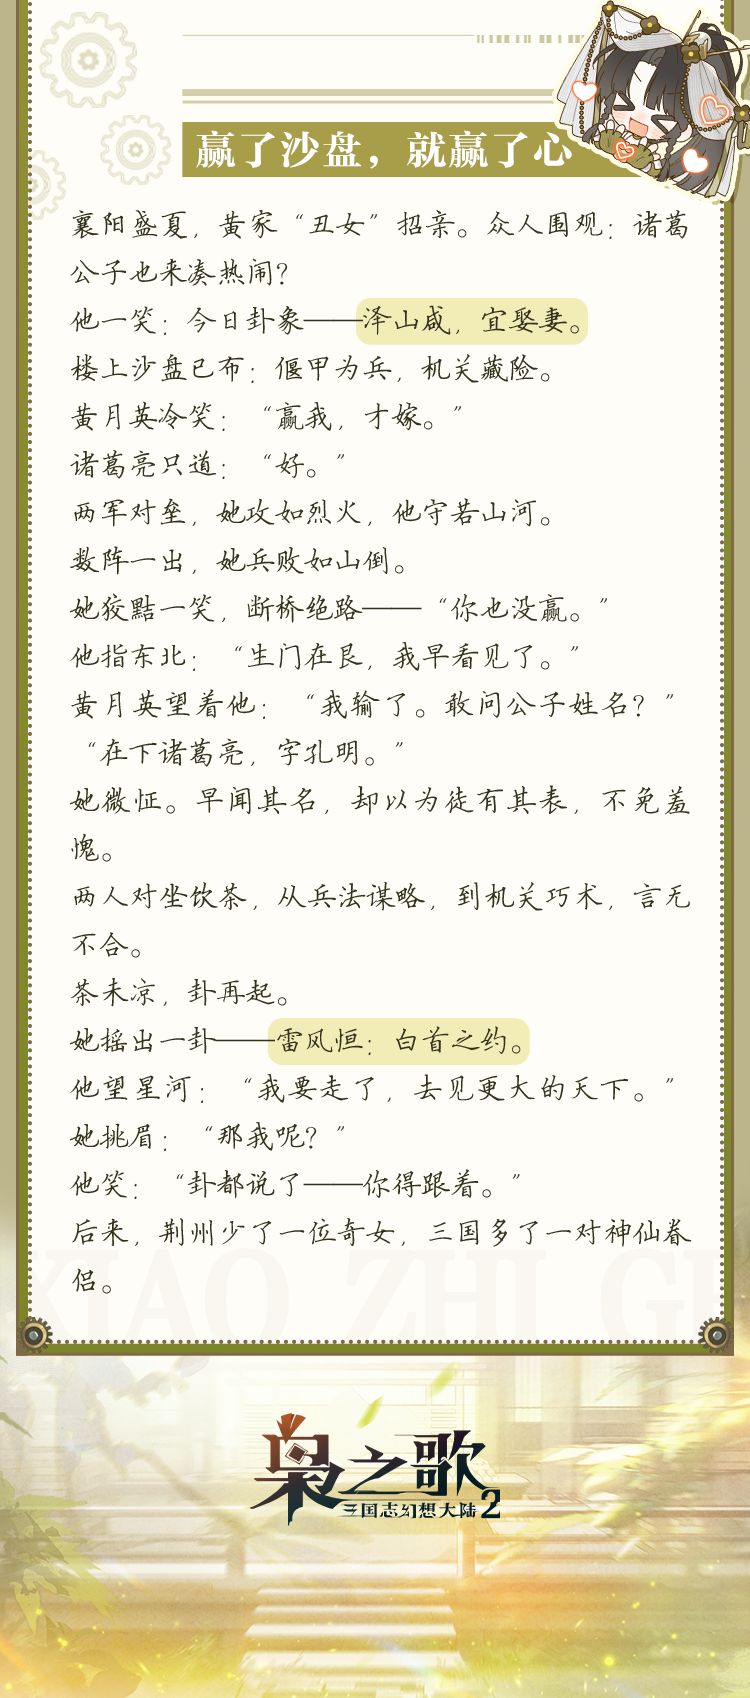 赢了沙盘，就赢了心
襄阳盛夏，黄家“丑女”招亲。众人围观：诸葛
公子也来凑热闹？
他一笑：今日卦象——泽山咸，宜娶妻。
楼上沙盘已布：偃甲为兵，机关藏险。
黄月英冷笑：“赢我，才嫁。”
诸葛亮只道：“好。”
两军对垒，她攻如烈火，他守若山河。
数阵一出，她兵败如山倒。
她狡黠一笑，断桥绝路——“你也没赢。”
他指东北：“生门在艮，我早看见了。”
黄月英望着他：“我输了。敢问公子姓名？”
“在下诸葛亮，字孔明。”
她微怔。早闻其名，却以为徒有其表，不免羞
愧。
两人对坐饮茶，从兵法谋略，到机关巧术，言无
不合。
茶未凉，卦再起。
她摇出一卦——雷风恒：白首之约。
他望星河：“我要走了，去见更大的天下。”
她挑眉：“那我呢？”
他笑：“卦都说了——你得跟着。”
后来，荆州少了一位奇女，三国多了一对神仙眷
侣。
XIAO ZHI GE
枭之歌
三国志幻想大陆2